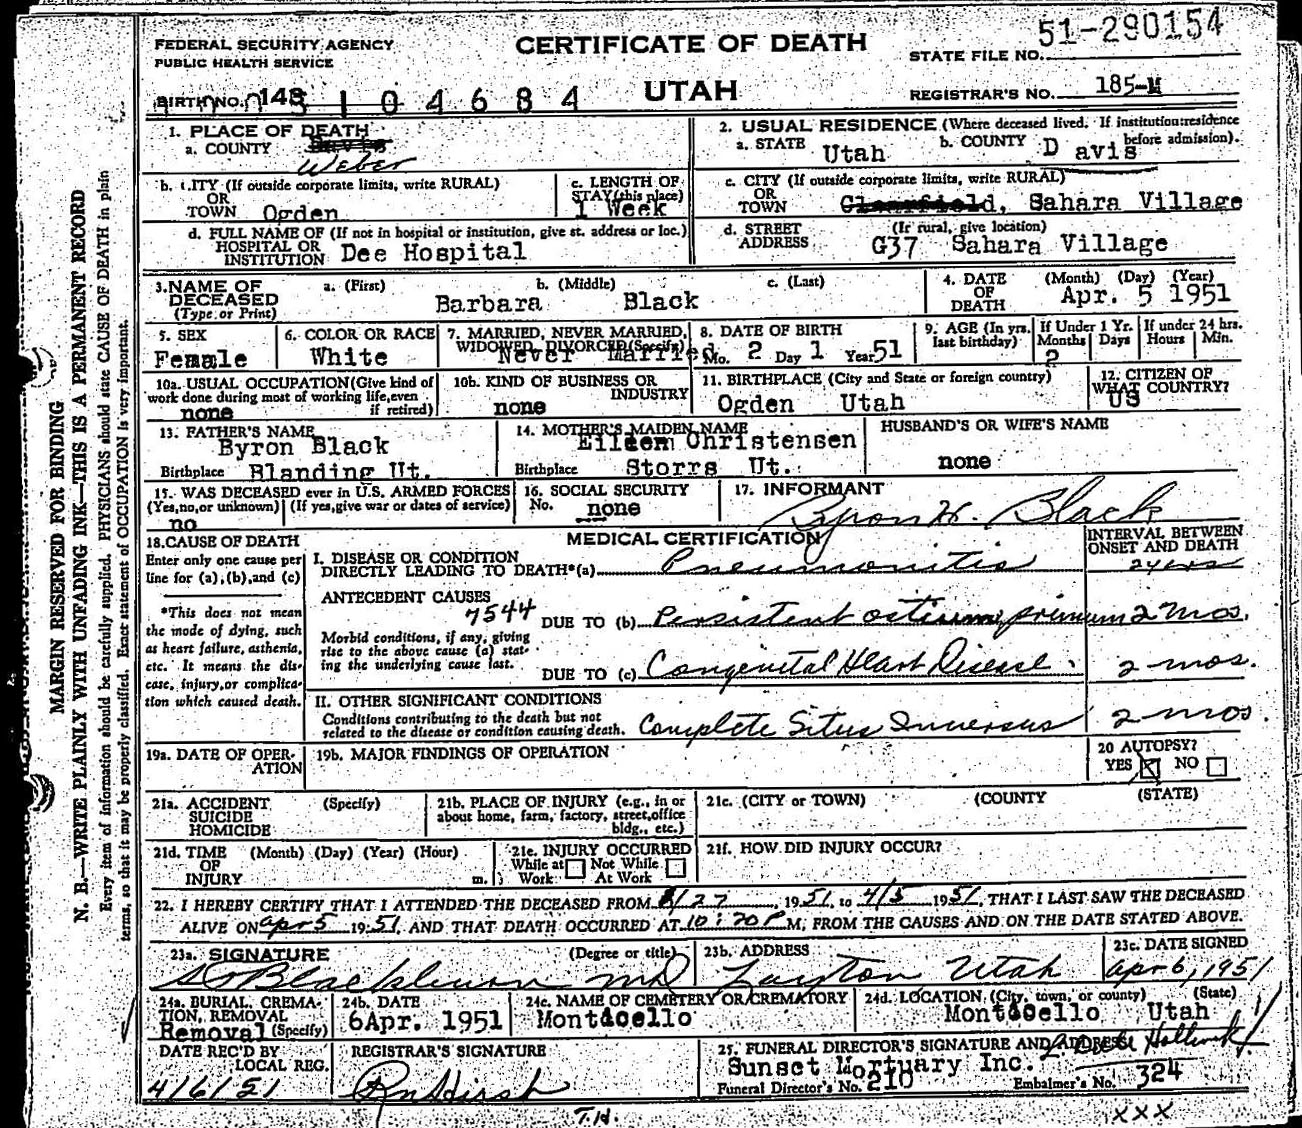 FEDERAL SECURITY AGENCY
PUBLIC HEALTH SERVICE
CERTIFICATE OF DEATH
UTAH
STATE FILE NO. 51-290154
REGISTRAR'S NO. 185-M
BIRTH NO. 148 5104684
1. PLACE OF DEATH
a. COUNTY Davis
Weber
b. CITY (If outside corporate limits, write RURAL)
OR
TOWN Ogden
c. LENGTH OF
STAY (this place)
1 Week
d. FULL NAME OF (If not in hospital or institution, give st. address or loc.)
HOSPITAL OR
INSTITUTION Dee Hospital
2. USUAL RESIDENCE (Where deceased lived. If institution: residence
before admission).
a. STATE Utah b. COUNTY D avis
c. CITY (If outside corporate limits, write RURAL)
OR
TOWN Clearfield, Sahara Village
d. STREET (If rural, give location)
ADDRESS G37 Sahara Village
3. NAME OF a. (First) b. (Middle) c. (Last)
DECEASED
(Type or Print) Barbara Black
4. DATE (Month) (Day) (Year)
OF
DEATH Apr. 5 1951
5. SEX
Female
6. COLOR OR RACE
White
7. MARRIED, NEVER MARRIED,
WIDOWED, DIVORCED (Specify)
Never Married
8. DATE OF BIRTH
Mo. 2 Day 1 Year 51
9. AGE (In yrs.
last birthday)
If Under 1 Yr.
Months Days
2
If under 24 hrs.
Hours Min.
10a. USUAL OCCUPATION (Give kind of
work done during most of working life, even
if retired)
none
10b. KIND OF BUSINESS OR
INDUSTRY
none
11. BIRTHPLACE (City and State or foreign country)
Ogden Utah
12. CITIZEN OF
WHAT COUNTRY?
US
13. FATHER'S NAME
Byron Black
Birthplace Blanding Ut.
14. MOTHER'S MAIDEN NAME
Eileen Christensen
Birthplace Storrs Ut.
HUSBAND'S OR WIFE'S NAME
none
15. WAS DECEASED ever in U.S. ARMED FORCES
(Yes, no, or unknown) (If yes, give war or dates of service)
no
16. SOCIAL SECURITY
No. none
17. INFORMANT
Byron H. Black
18. CAUSE OF DEATH
Enter only one cause per
line for (a), (b), and (c)
*This does not mean
the mode of dying, such
as heart failure, asthenia,
etc. It means the dis-
ease, injury, or complica-
tion which caused death.
MEDICAL CERTIFICATION
INTERVAL BETWEEN
ONSET AND DEATH
I. DISEASE OR CONDITION
DIRECTLY LEADING TO DEATH*(a) Pneumonitis
ANTECEDENT CAUSES
7544
DUE TO (b) Persistent ostium primum 2 mos.
Morbid conditions, if any, giving
rise to the above cause (a) stat-
ing the underlying cause last.
DUE TO (c) Congenital Heart Disease. 2 mos.
II. OTHER SIGNIFICANT CONDITIONS
Conditions contributing to the death but not
related to the disease or condition causing death. Complete Situs Inversus 2 mos.
19a. DATE OF OPER-
ATION
19b. MAJOR FINDINGS OF OPERATION
20 AUTOPSY?
YES NO
21a. ACCIDENT (Specify)
SUICIDE
HOMICIDE
21b. PLACE OF INJURY (e.g., in or
about home, farm, factory, street, office
bldg., etc.)
21c. (CITY or TOWN) (COUNTY (STATE)
21d. TIME (Month) (Day) (Year) (Hour)
OF
INJURY m.
21e. INJURY OCCURRED
While at Not While
Work At Work
21f. HOW DID INJURY OCCUR?
22. I HEREBY CERTIFY THAT I ATTENDED THE DECEASED FROM 3/27, 1951, to 4/5 1951, THAT I LAST SAW THE DECEASED
ALIVE ON apr 5 1951, AND THAT DEATH OCCURRED AT 10:20 P M, FROM THE CAUSES AND ON THE DATE STATED ABOVE.
23a. SIGNATURE (Degree or title)
Blackburn MD
23b. ADDRESS
Layton Utah
23c. DATE SIGNED
apr 6, 1951
24a. BURIAL, CREMA-
TION, REMOVAL
Removal (Specify)
24b. DATE
6Apr. 1951
24c. NAME OF CEMETERY OR CREMATORY
Monticello
24d. LOCATION (City, town, or county) (State)
Monticello Utah
DATE REC'D BY
LOCAL REG.
4/6/51
REGISTRAR'S SIGNATURE
25. FUNERAL DIRECTOR'S SIGNATURE AND ADDRESS
Sunset Mortuary Inc.
Funeral Director's No. 210 Embalmer's No. 324
T.H. XXX
MARGIN RESERVED FOR BINDING
N. B.—WRITE PLAINLY WITH UNFADING INK—THIS IS A PERMANENT RECORD
Every item of information should be carefully supplied. PHYSICIANS should state CAUSE OF DEATH in plain
terms, so that it may be properly classified. Exact statement of OCCUPATION is very important.